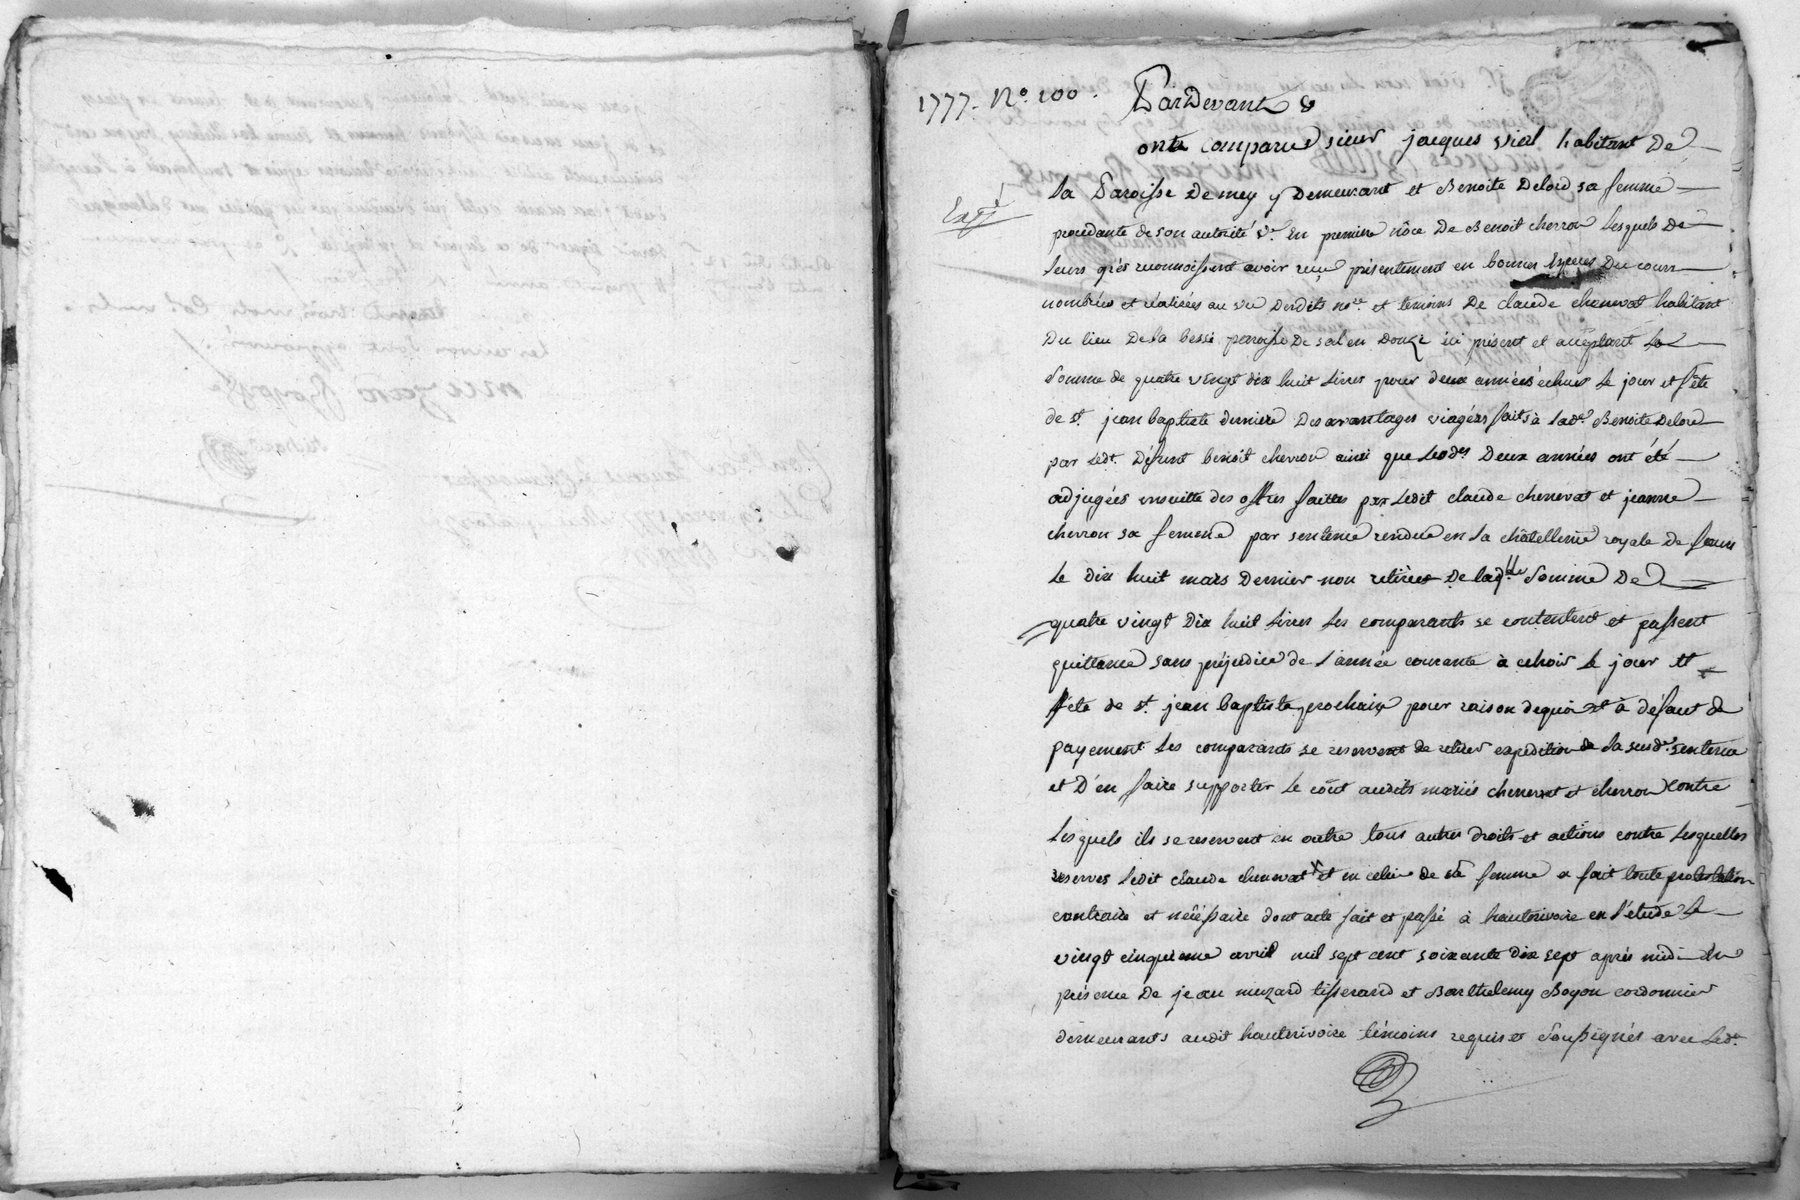 1777. No. 100.
Pardevant &
ont comparus sieur jacques vial habitant De
la Paroisse De mey y Demeurant et Benoite Delord sa femme
procedante de son autorité Ve. En premiere nôce De Benoit cherron Lesquels De
Leurs grés reconnoissent avoir reçu présentement en bonnes Especes Du cours
nombrées et réalisées au vû Desdits nore. et temoins De claude chenevat habitant
Du lieu De la besse paroisse De sal en Donzi ici présent et acceptant La
Somme de quatre vingt dix huit Livres pour deux années échues Le jour et fête
de st. jean baptiste derniere Des avantages viagers faits à ladte Benoite Delord
par Ledt. Défunt benoit cherron ainsi que Lesdes Deux années ont été
adjugées ensuitte des offres faittes par Ledit claude chenevat et jeanne
cherron sa femme par sentence rendue en la châtellenie royale de feurs
Le dix huit mars Dernier non retirée De laqlle Somme De
quatre vingt Dix huit Livres Les comparants se contentent et passent
quittance sans préjudice de l'année courante à echoir Le jour et
fête de st. jean baptiste prochain pour raison dequoi et à défaut de
payement Les comparants se reservent de retirer expedition de la susde. sentence
et D'en faire supporter Le coût audits mariés chenevat et cherron contre
Lesquels ils se reservent en outre tous autres droits et actions contre Lesquelles
reserves Ledit claude chenevat et en celui de sa femme a fait toute protestation
contraire et nécessaire dont acte fait et passé à hauterivoire en l'étude Le
vingt cinquieme avril mil sept cent soixante dix sept après midi En
présence De jean muzard tisserand et Barthelemy Boyon cordonnier
demeurants audit hauterivoire témoins requis et Soussignés avec Ledt.